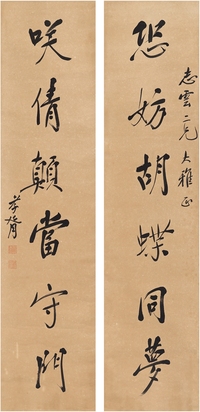 志雲二兄大雅正
恐妨胡蝶同夢
笑倩顛當守門
孝胥